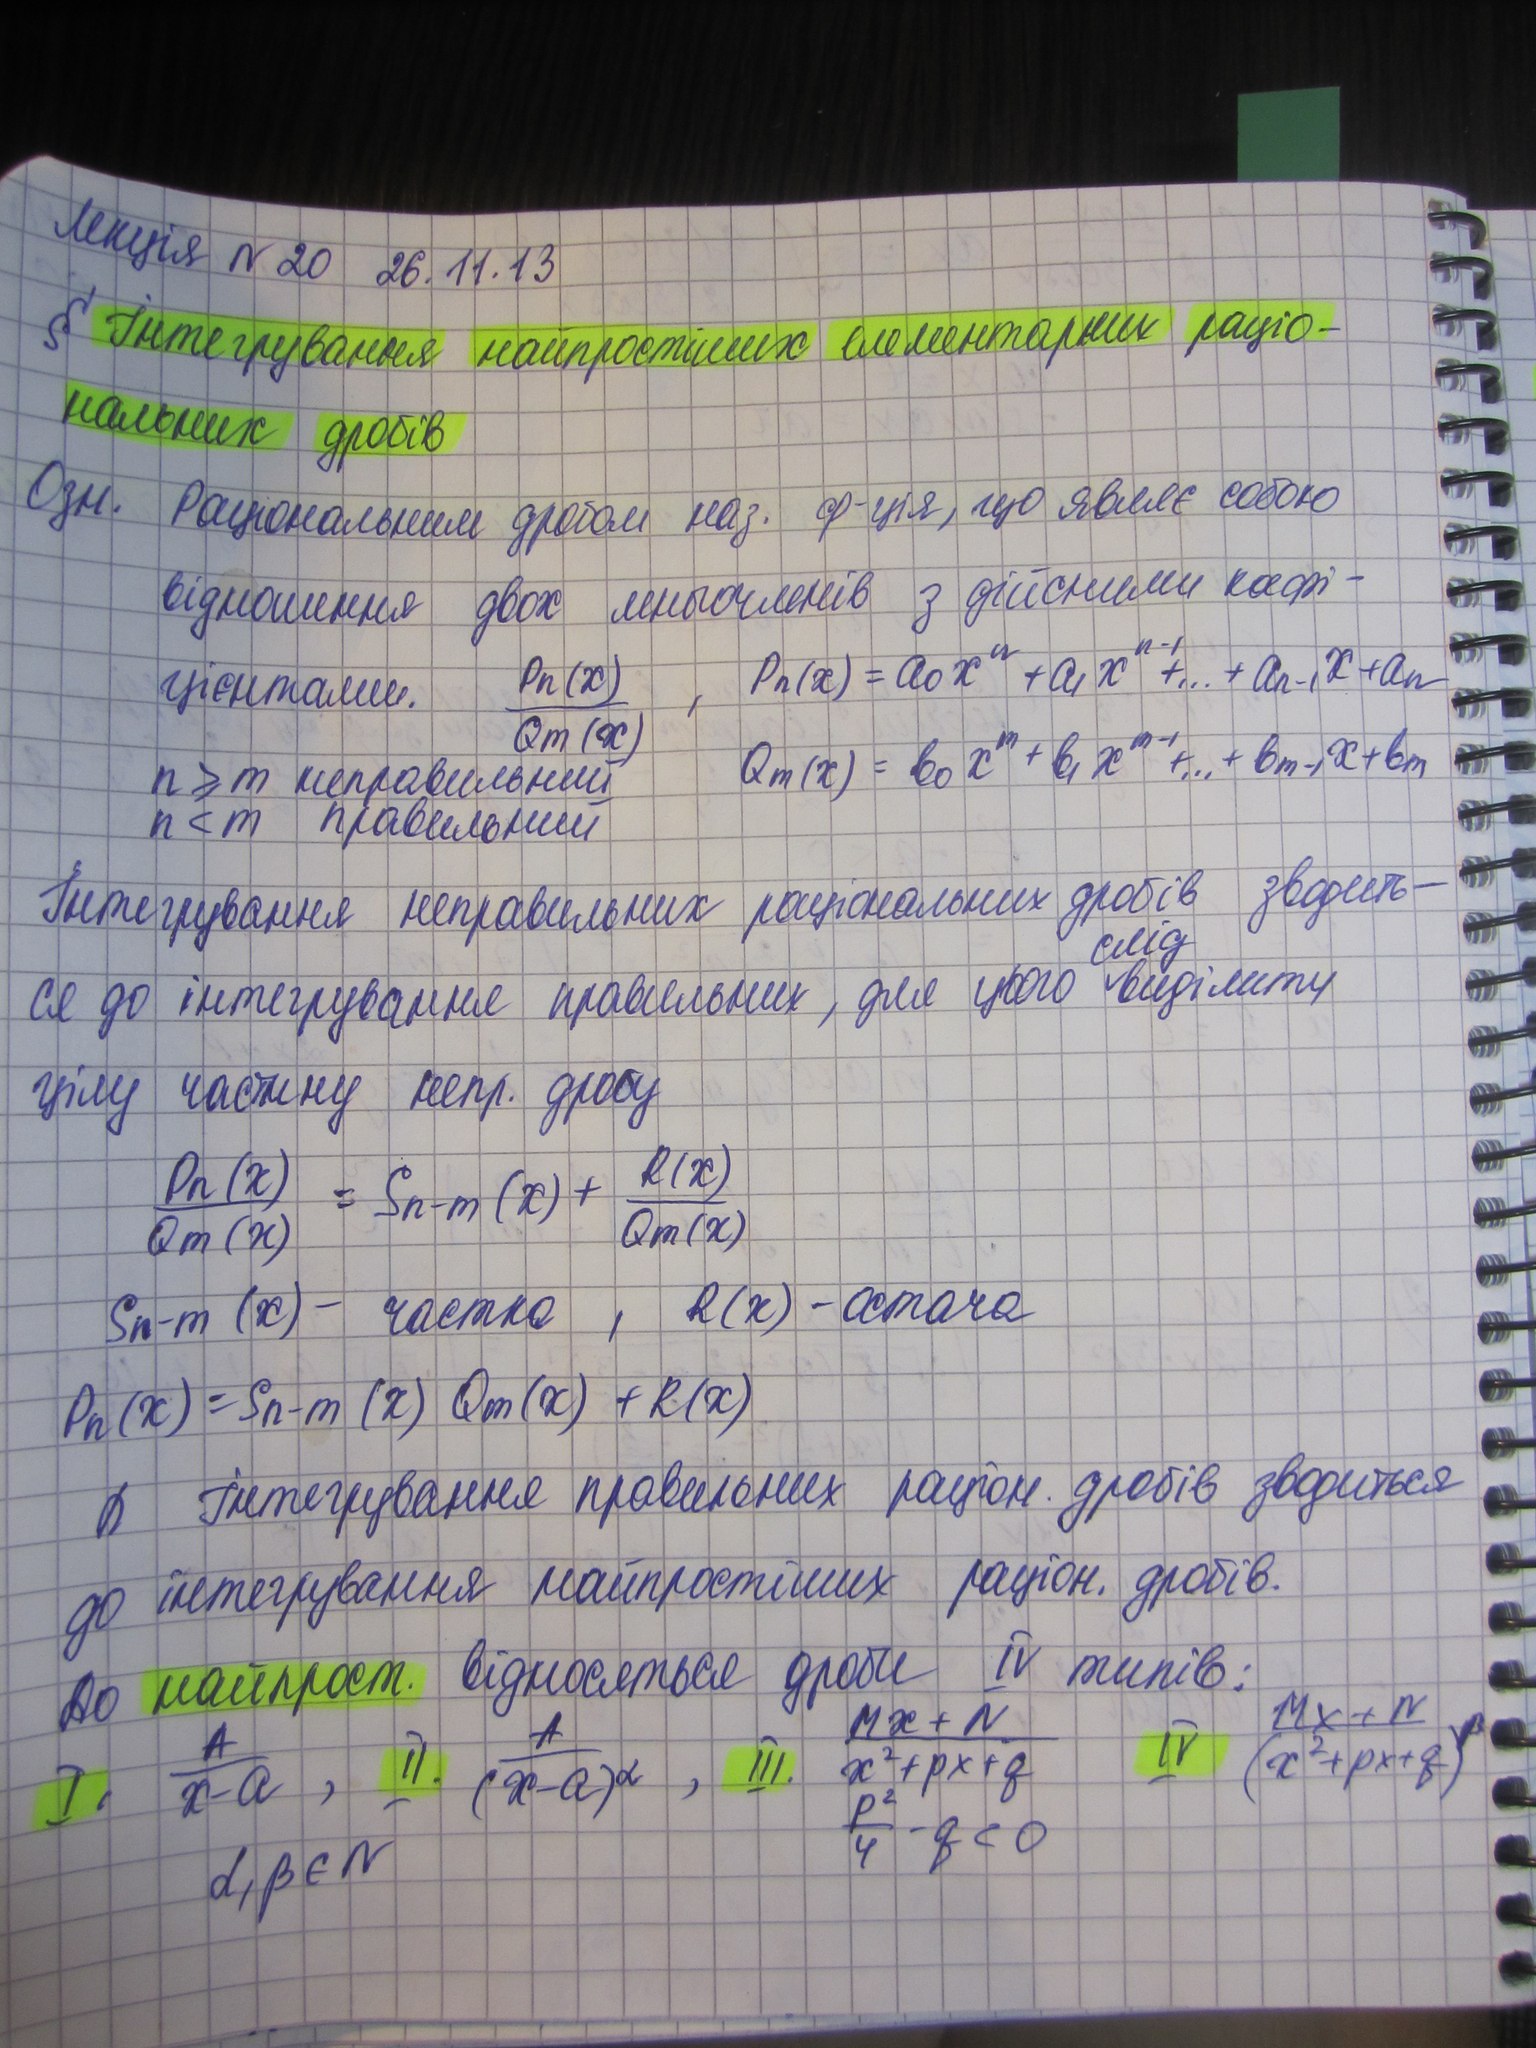 Лекція N 20 26.11.13
§ Інтегрування найпростіших елементарних раціо-
нальних дробів
Озн. Раціональним дробом наз. ф-ція, що являє собою
відношення двох многочленів з дійсними коефі-
цієнтами. Pn(x)/Qm(x) , Pn(x) = a₀xⁿ + a₁xⁿ⁻¹ + ... + an-1x + an
n ⩾ m неправильний Qm(x) = b₀x^m + b₁x^(m-1) + ... + bm-1x + bm
n < m правильний
Інтегрування неправильних раціональних дробів зводить-
слід
ся до інтегрування правильних, для цього виділити
цілу частину непр. дробу
Pn(x)/Qm(x) = Sn-m(x) + R(x)/Qm(x)
Sn-m(x) - частка , R(x) - остача
Pn(x) = Sn-m(x) Qm(x) + R(x)
Інтегрування правильних раціон. дробів зводиться
до інтегрування найпростіших раціон. дробів.
До найпрост. відносяться дроби IV типів:
I. A/(x-a) , II. A/(x-a)^α , III. (Mx+N)/(x²+px+q) IV (Mx+N)/(x²+px+q)^β
p²/4 - q < 0
α, β ∈ N